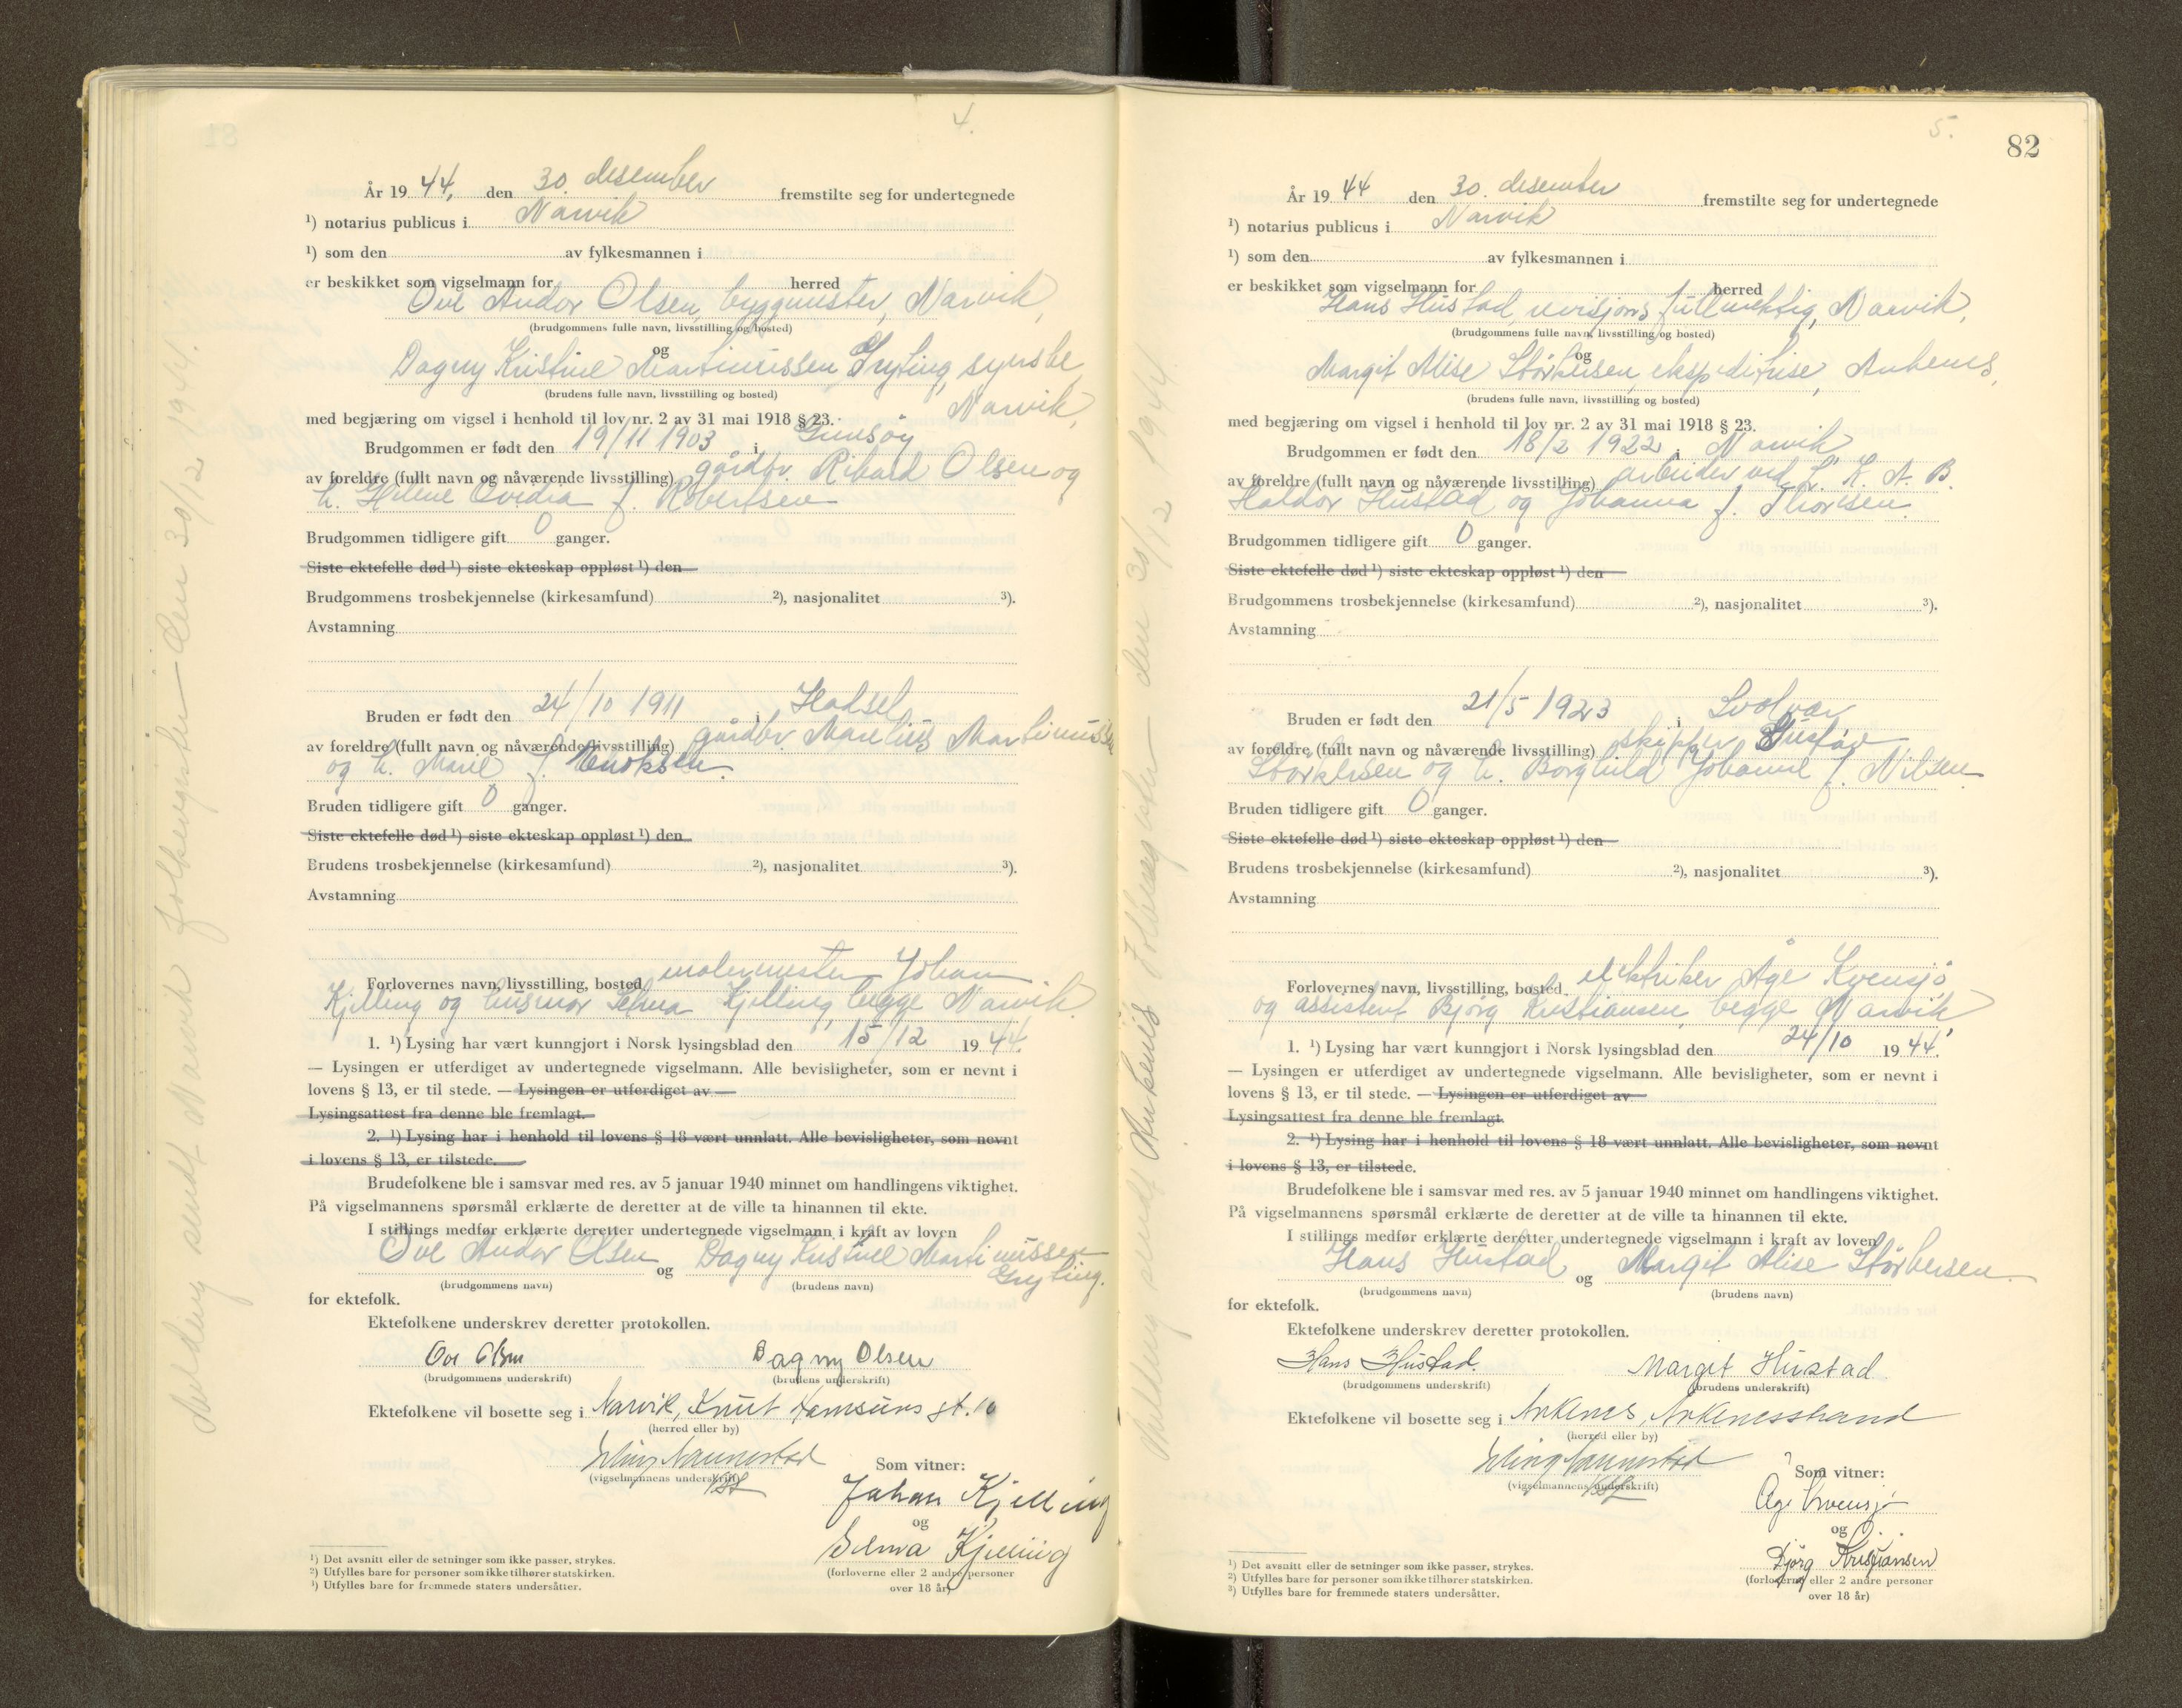 4.
År 1944, den 30. desember fremstilte seg for undertegnede
¹) notarius publicus i Narvik
¹) som den av fylkesmannen i
er beskikket som vigselmann for herred
Ove Andor Olsen, byggmester, Narvik,
(brudgommens fulle navn, livsstilling og bosted)
og
Dagny Kristine Martinussen Gryting, syerske
(brudens fulle navn, livsstilling og bosted)
Narvik,
med begjæring om vigsel i henhold til lov nr. 2 av 31 mai 1918 § 23.
Brudgommen er født den 19/11 1903 i Gimsøy
av foreldre (fullt navn og nåværende livsstilling) gårdbr. Rikard Olsen og
h. Helene Ovidia f. Robertsen
Brudgommen tidligere gift 0 ganger.
Siste ektefelle død ¹) siste ekteskap oppløst ¹) den
Brudgommens trosbekjennelse (kirkesamfund) ²), nasjonalitet ³).
Avstamning
Bruden er født den 24/10 1911 i Hadsel
av foreldre (fullt navn og nåværende livsstilling) gårdbr. Marelius Martinussen
og h. Marie f.
Bruden tidligere gift 0 ganger.
Siste ektefelle død ¹) siste ekteskap oppløst ¹) den
Brudens trosbekjennelse (kirkesamfund) ²), nasjonalitet ³).
Avstamning
Forlovernes navn, livsstilling, bosted malermester Johan
Kjelling og husmor Selma Kjelling, begge Narvik
1. ¹) Lysing har vært kunngjort i Norsk lysingsblad den 15/12 1944.
— Lysingen er utferdiget av undertegnede vigselmann. Alle bevisligheter, som er nevnt i
lovens § 13, er til stede. — Lysingen er utferdiget av
Lysingsattest fra denne ble fremlagt.
2. ¹) Lysing har i henhold til lovens § 18 vært unnlatt. Alle bevisligheter, som nevnt
i lovens § 13, er tilstede.
Brudefolkene ble i samsvar med res. av 5 januar 1940 minnet om handlingens viktighet.
På vigselmannens spørsmål erklærte de deretter at de ville ta hinannen til ekte.
I stillings medfør erklærte deretter undertegnede vigselmann i kraft av loven
Ove Andor Olsen og Dagny Kristine Martinussen
Gryting.
(brudgommens navn) (brudens navn)
for ektefolk.
Ektefolkene underskrev deretter protokollen.
Ove Olsen Dagny Olsen
(brudgommens underskrift) (brudens underskrift)
Ektefolkene vil bosette seg i Narvik, Knut Hamsuns gt. 10
(herred eller by)
(vigselmannens underskrift)
Som vitner:
Johan Kjelling
og
Selma Kjelling
(forloverne eller 2 andre personer
over 18 år)
¹) Det avsnitt eller de setninger som ikke passer, strykes.
²) Utfylles bare for personer som ikke tilhører statskirken.
³) Utfylles bare for fremmede staters undersåtter.
Melding sendt Narvik folkeregister den 30/12 1944.
5.
82
År 1944 den 30. desember fremstilte seg for undertegnede
¹) notarius publicus i Narvik
¹) som den av fylkesmannen i
er beskikket som vigselmann for herred
Hans Hustad, revisjonsfullmektig, Narvik,
(brudgommens fulle navn, livsstilling og bosted)
og
Margit Alise Størkersen, ekspeditrise, Ankenes,
(brudens fulle navn, livsstilling og bosted)
med begjæring om vigsel i henhold til lov nr. 2 av 31 mai 1918 § 23.
Brudgommen er født den 18/2 1922 i Narvik
av foreldre (fullt navn og nåværende livsstilling) arbeider ved L. K. A. B.
Haldor Hustad og Johanna f. Thorsen.
Brudgommen tidligere gift 0 ganger.
Siste ektefelle død ¹) siste ekteskap oppløst ¹) den
Brudgommens trosbekjennelse (kirkesamfund) ²), nasjonalitet ³).
Avstamning
Bruden er født den 21/5 1923 i Svolvær
av foreldre (fullt navn og nåværende livsstilling) skipper Gustav
Størkersen og h. Borghild Johanne f. Nilsen
Bruden tidligere gift 0 ganger.
Siste ektefelle død ¹) siste ekteskap oppløst ¹) den
Brudens trosbekjennelse (kirkesamfund) ²), nasjonalitet ³).
Avstamning
Forlovernes navn, livsstilling, bosted elektriker Åge Kvensjø
og assistent Bjørg Kristiansen, begge Narvik
1. ¹) Lysing har vært kunngjort i Norsk lysingsblad den 24/10 1944.
— Lysingen er utferdiget av undertegnede vigselmann. Alle bevisligheter, som er nevnt i
lovens § 13, er til stede. — Lysingen er utferdiget av
Lysingsattest fra denne ble fremlagt.
2. ¹) Lysing har i henhold til lovens § 18 vært unnlatt. Alle bevisligheter, som nevnt
i lovens § 13, er tilstede.
Brudefolkene ble i samsvar med res. av 5 januar 1940 minnet om handlingens viktighet.
På vigselmannens spørsmål erklærte de deretter at de ville ta hinannen til ekte.
I stillings medfør erklærte deretter undertegnede vigselmann i kraft av loven
Hans Hustad og Margit Alise Størkersen
(brudgommens navn) (brudens navn)
for ektefolk.
Ektefolkene underskrev deretter protokollen.
Hans Hustad. Margit Hustad
(brudgommens underskrift) (brudens underskrift)
Ektefolkene vil bosette seg i Ankenes, Ankenesstrand
(herred eller by)
(vigselmannens underskrift)
Som vitner:
Åge Kvensjø
og
Bjørg Kristiansen
(forloverne eller 2 andre personer
over 18 år)
¹) Det avsnitt eller de setninger som ikke passer, strykes.
²) Utfylles bare for personer som ikke tilhører statskirken.
³) Utfylles bare for fremmede staters undersåtter.
Melding sendt Ankenes Folkeregister den 30/12 1944